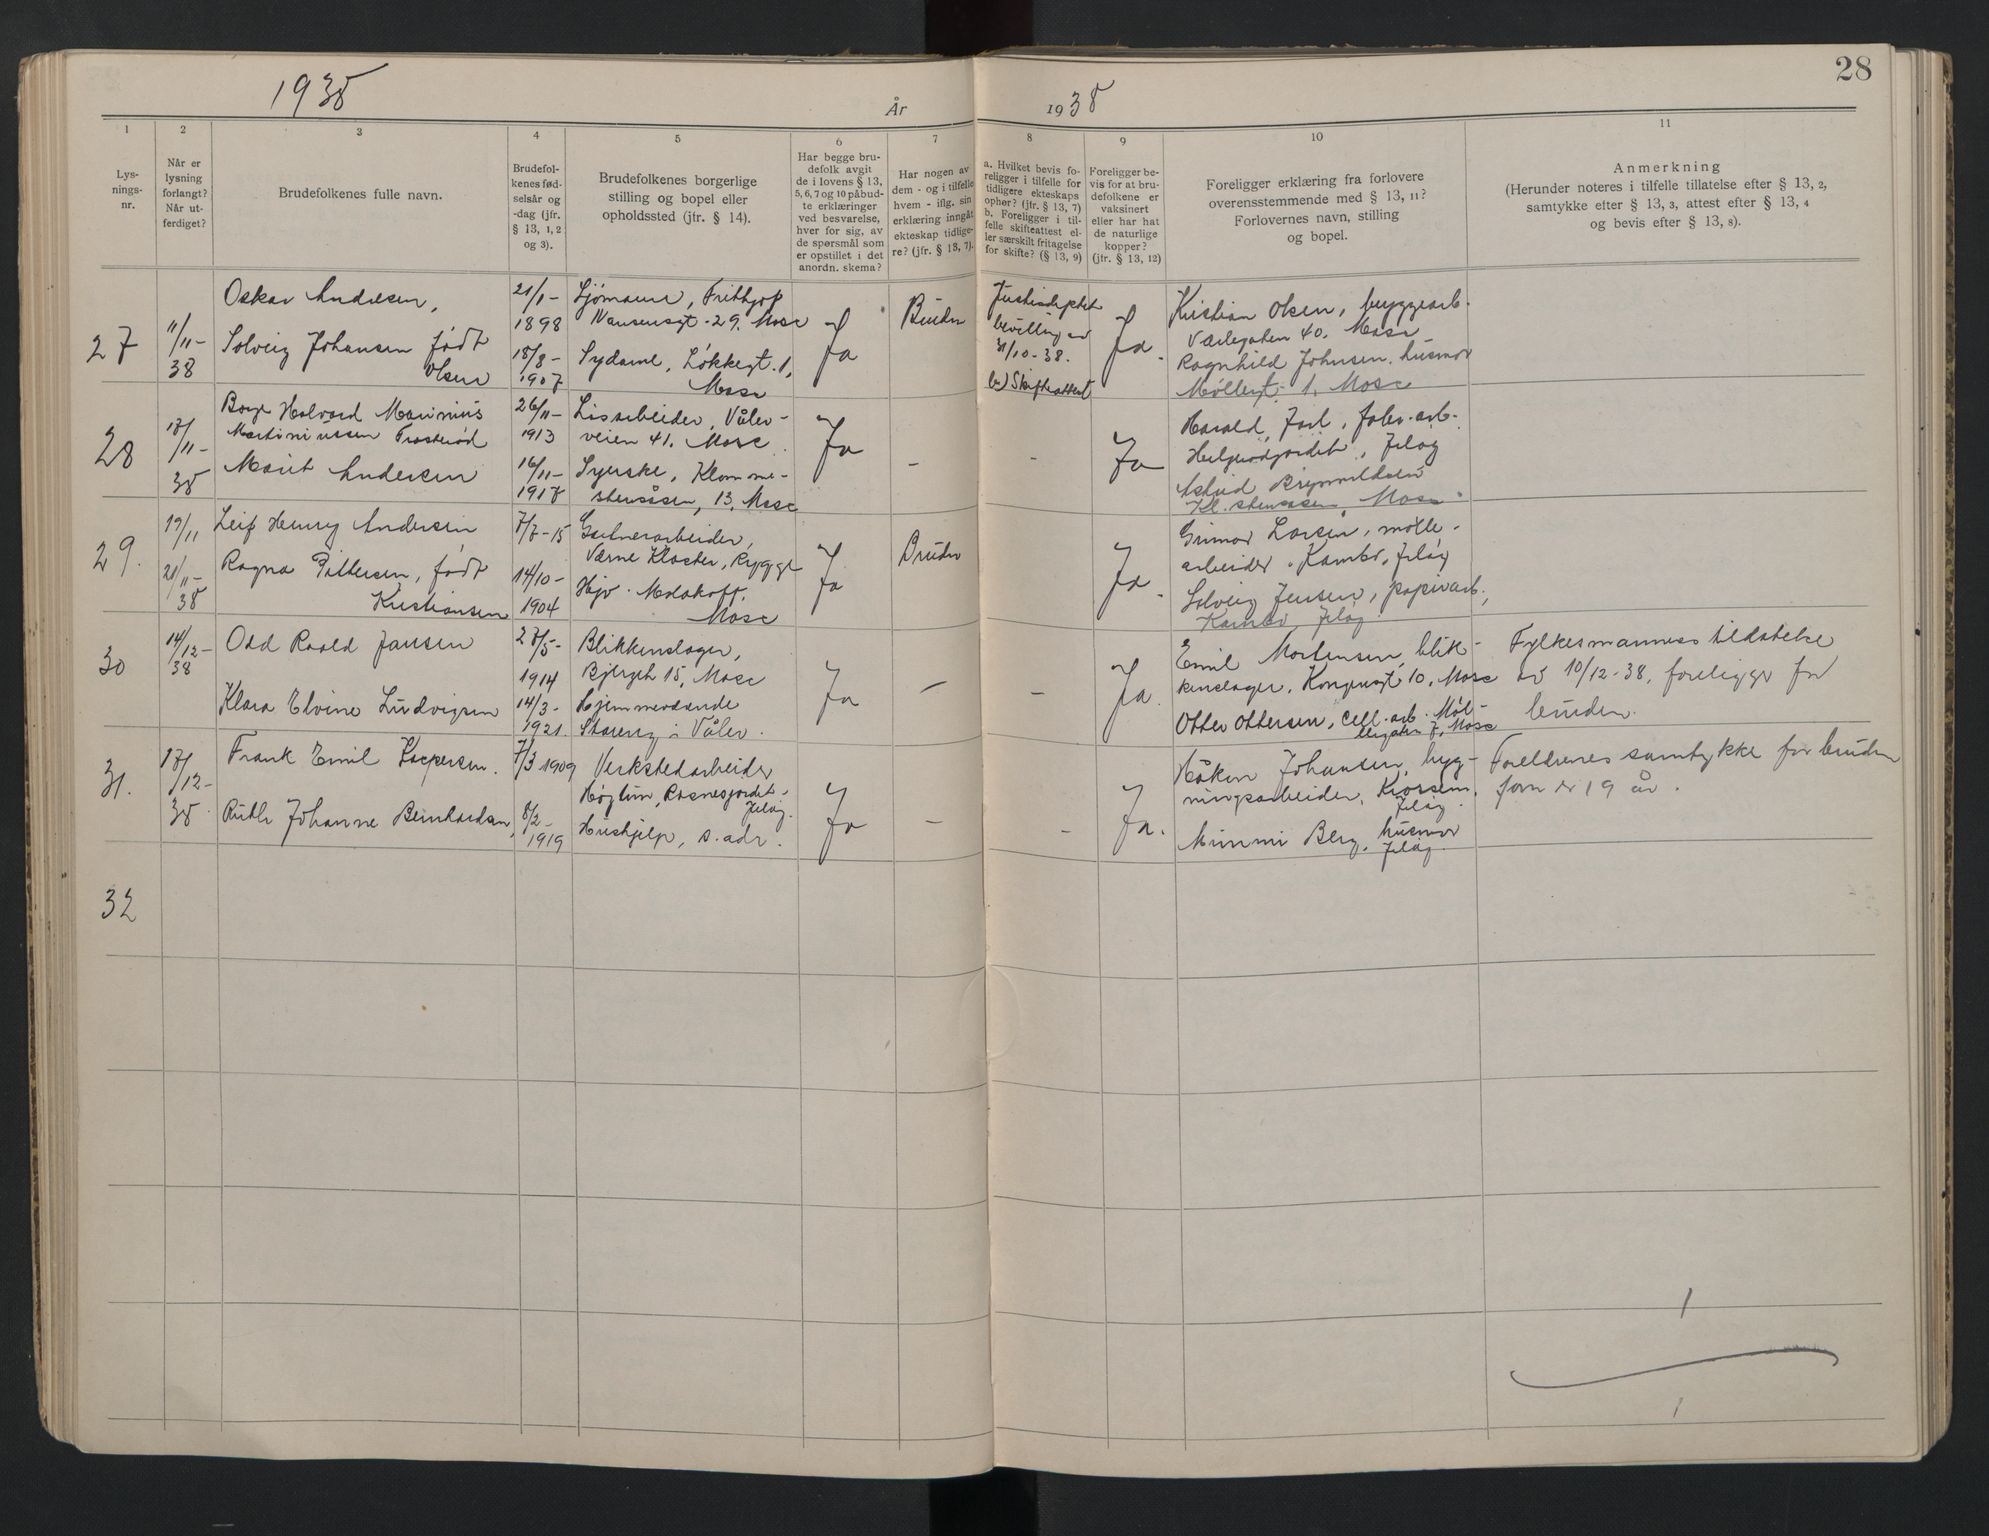 28
1938
År
1938
1
2
3
4
5
6
7
8
9
10
11
Lys-
nings-
nr.
Når er
lysning
forlangt?
Når ut-
ferdiget?
Brudefolkenes fulle navn.
Brudefol-
kenes fød-
selsår og
-dag (jfr.
§ 13, 1, 2
og 3).
Brudefolkenes borgerlige
stilling og bopel eller
opholdssted (jfr. § 14).
Har begge bru-
defolk avgit
de i lovens § 13,
5, 6, 7 og 10 påbud-
te erklæringer
ved besvarelse,
hver for sig, av
de spørsmål som
er opstillet i det
anordn. skema?
Har nogen av
dem - og i tilfelle
hvem - iflg. sin
erklæring inngått
ekteskap tidlige-
re? (jfr. § 13, 7).
a. Hvilket bevis fo-
religger i tilfelle for
tidligere ekteskaps
ophør? (jfr. § 13, 7)
b. Foreligger i til-
felle skifteattest el-
ler særskilt fritagelse
for skifte? (§ 13, 9)
Foreligger be-
vis for at bru-
defolkene er
vaksinert
eller har hat
de naturlige
kopper?
(jfr. § 13, 12)
Foreligger erklæring fra forlovere
overensstemmende med § 13, 11?
Forlovernes navn, stilling
og bopel.
Anmerkning
(Herunder noteres i tilfelle tillatelse efter § 13, 2,
samtykke efter § 13, 3, attest efter § 13, 4
og bevis efter § 13, 8).
27
11/11-
38
Oskar Andresen,
Solveig Johansen født
Olsen
21/1-
1898
18/8-
1907
Sjømann, Frithjof
Nansensgt. 29. Moss
Sydame, Løkkegt. 1,
Moss
Ja
Bruden
Justisdeptet
bevilling av
31/10-38.
b) Skifteattest
Ja.
Kristian Olsen, byggearb.
Varlegaten 40. Moss
Ragnhild Johnsen, husmor
Møllergt. 1, Moss
28
18/11-
38
Borge Halvard Marinius
Martiniussen Trosterød
Marit Andersen
26/11-
1913
16/11-
1918
Løsarbeider, Våler-
veien 41. Moss.
Syerske, Klomme-
stensåsen, 13, Moss
Ja
-
-
Ja
Harald Jarl, fabr.arb.
Helgerødjordet, Jeløy
Astrid Brynmildsen
Kl.stensåsen, Moss.
29.
19/11
21/11-
38
Leif Henry Andersen
Ragna Pettersen, født
Kristiansen
7/7-15
14/10-
1904
Gartnerarbeider,
Værne Kloster, Rygge
Hjv. Malakoff.
Moss
Ja
Bruden
Ja.
Gunnar Larsen, mølle-
arbeider. Kambo, Jeløy
Solveig Jensen, papirarb.,
Kambo, Jeløy.
30
14/12-
38
Odd Roald Jansen
Klara Elvine Ludvigsen
27/5-
1914
14/3-
1921.
Blikkenslager,
Bjerget 15, Moss
Hjemmeværende
Storeng i Våler.
Ja
-
-
Ja.
Emil Mortensen, blik-
kenslager, Kongensgt 10, Moss
Otter Ottersen, cell.arb. Møl-
lergaten 7, Moss
Fylkesmannens tillatelse
av 10/12-38, foreligger for
bruden.
31.
17/12-
38
Frank Emil Kaspersen.
Ruth Johanne Bernhardsen,
7/3 1909
8/2-
1919
Verkstedarbeider
Høgtun, Rosnesjordet-
Jeløy.
Hushjelp, s. adr.
Ja
-
-
Ja.
Håken Johansen, byg-
ningsarbeider, Krossern,
Jeløy.
Mimmi Berg, husmor
Jeløy.
Foreldrenes samtykke for bruden
som er 19 år.
32